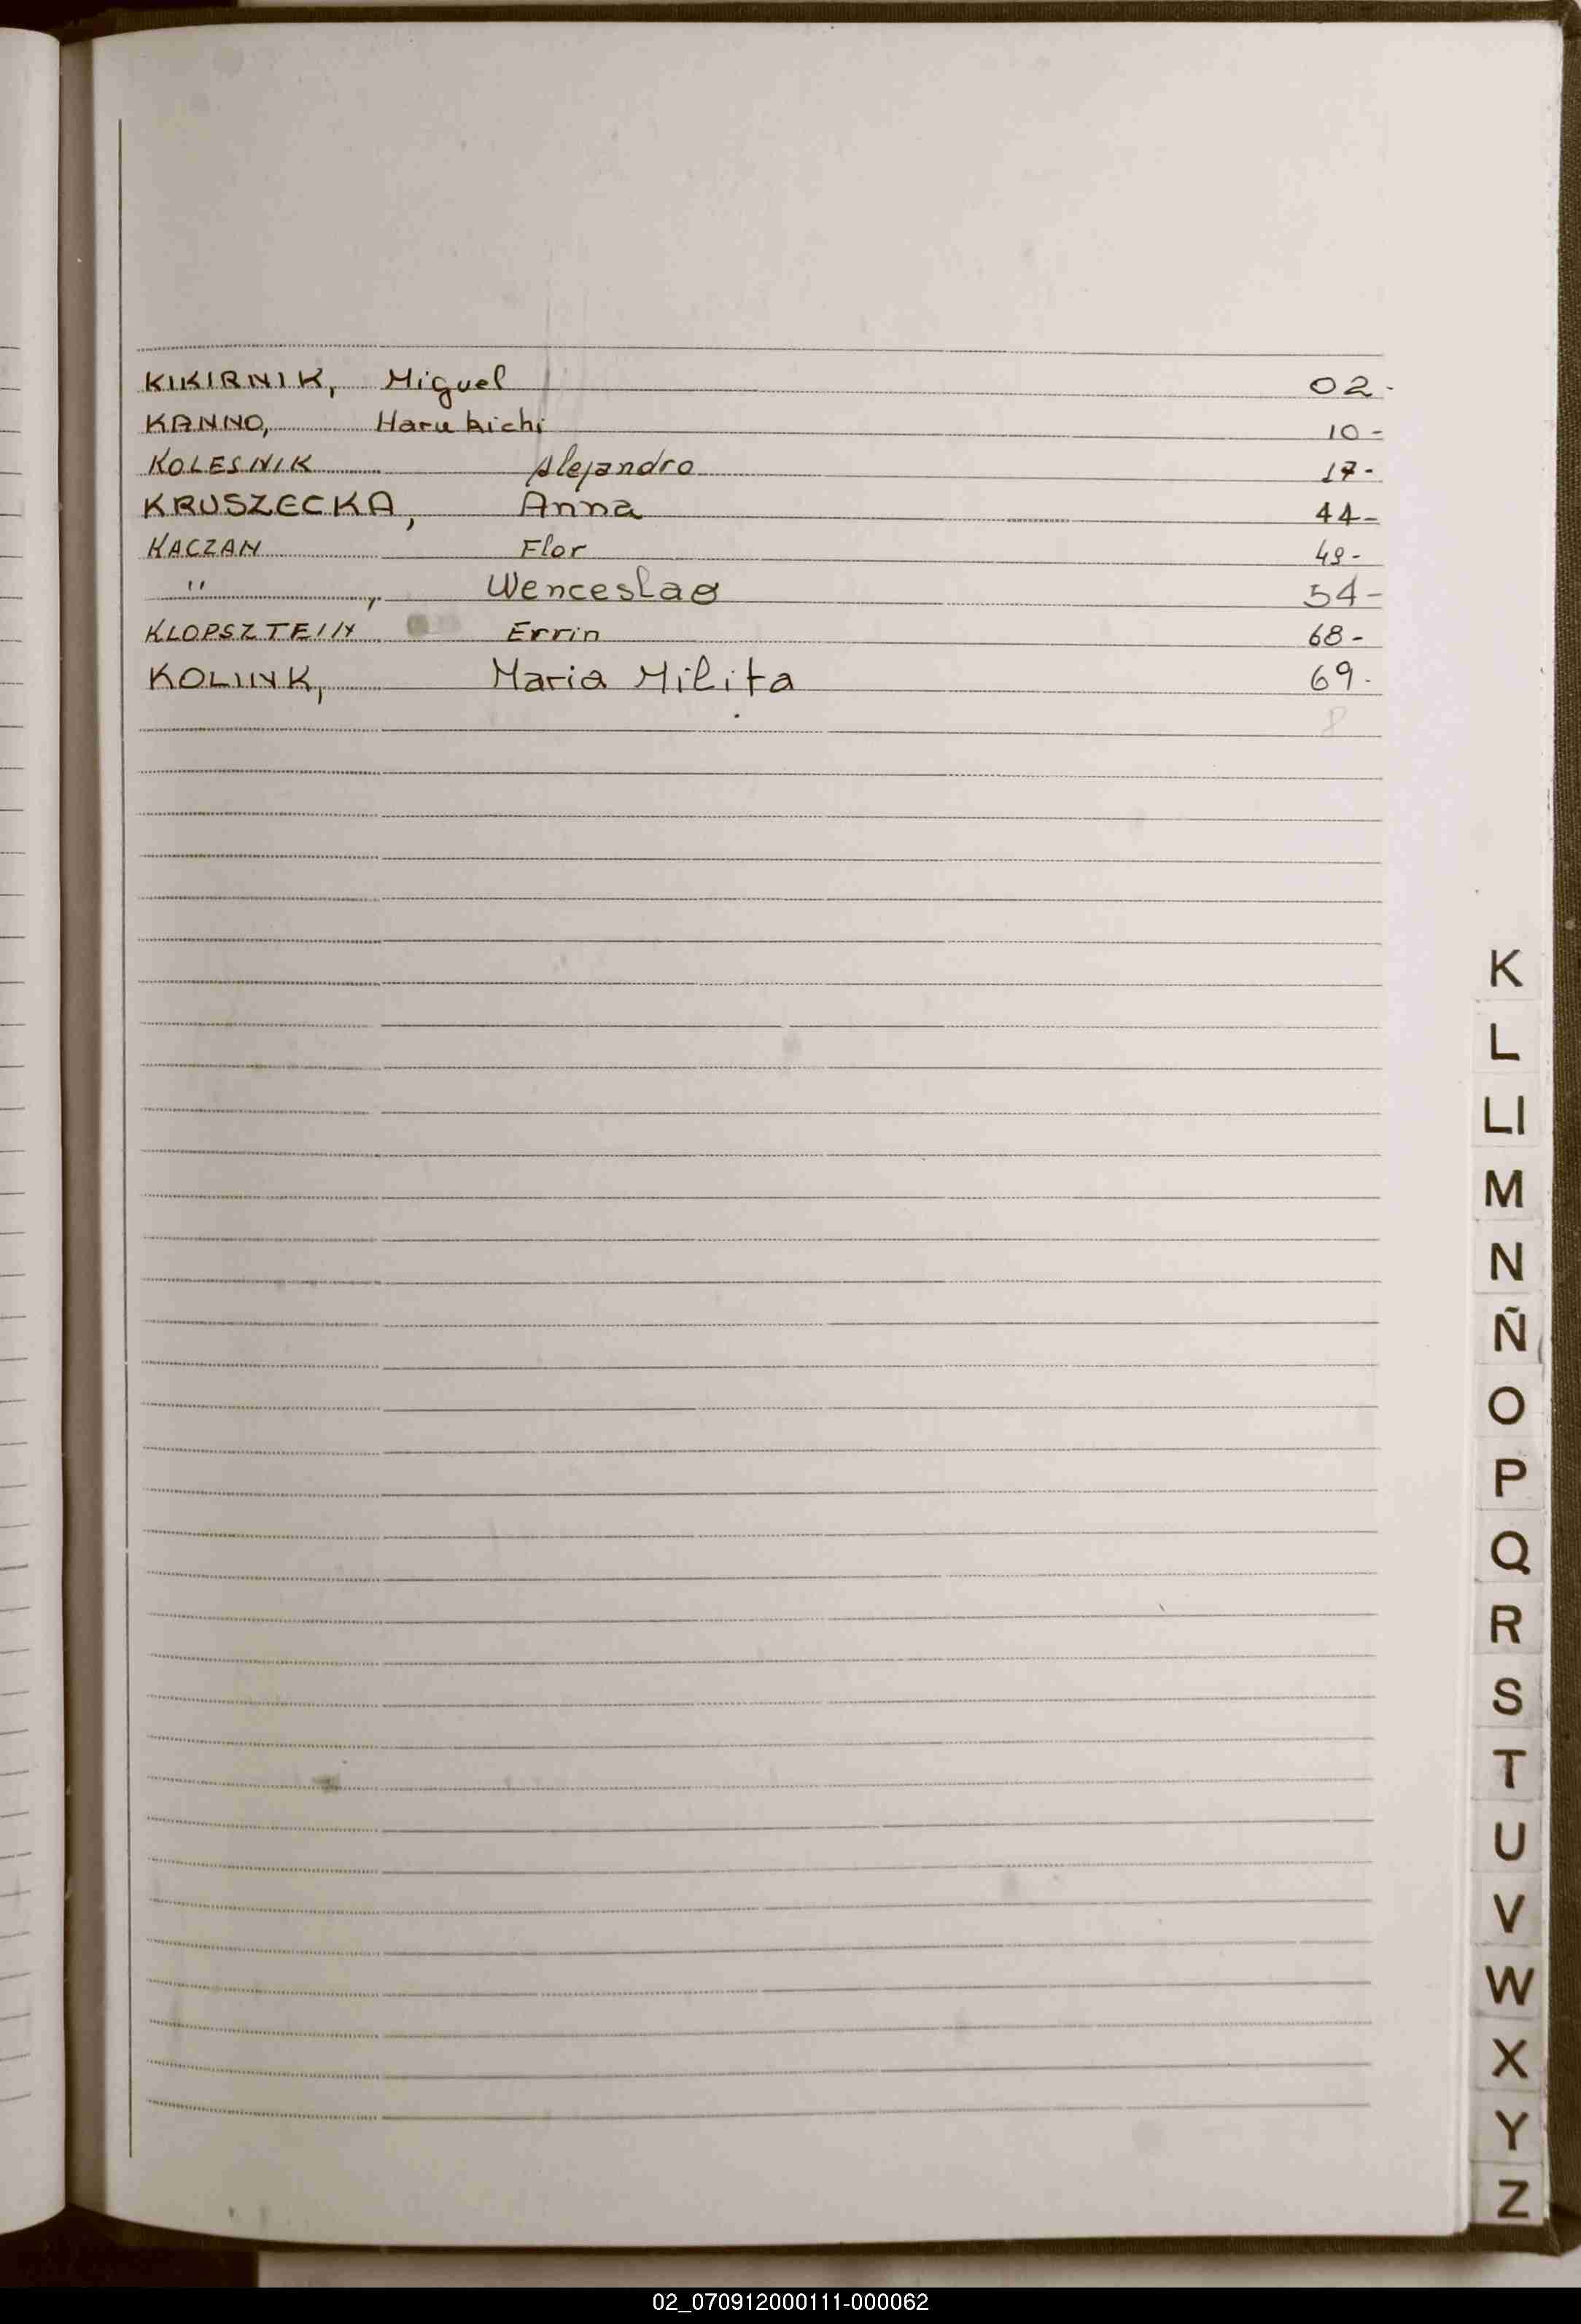 KIKIRNIK, Miguel 02-
KANNO, Harukichi 10-
KOLESNIK Alejandro 17-
KRUSZECKA, Anna 44-
KACZAN Flor 49-
" , Wenceslao 54-
KLOPSZTEIN Errin 68-
KOLINK, Maria Milita 69-
K
L
Ll
M
N
Ñ
O
P
Q
R
S
T
U
V
W
X
Y
Z
02_070912000111-000062